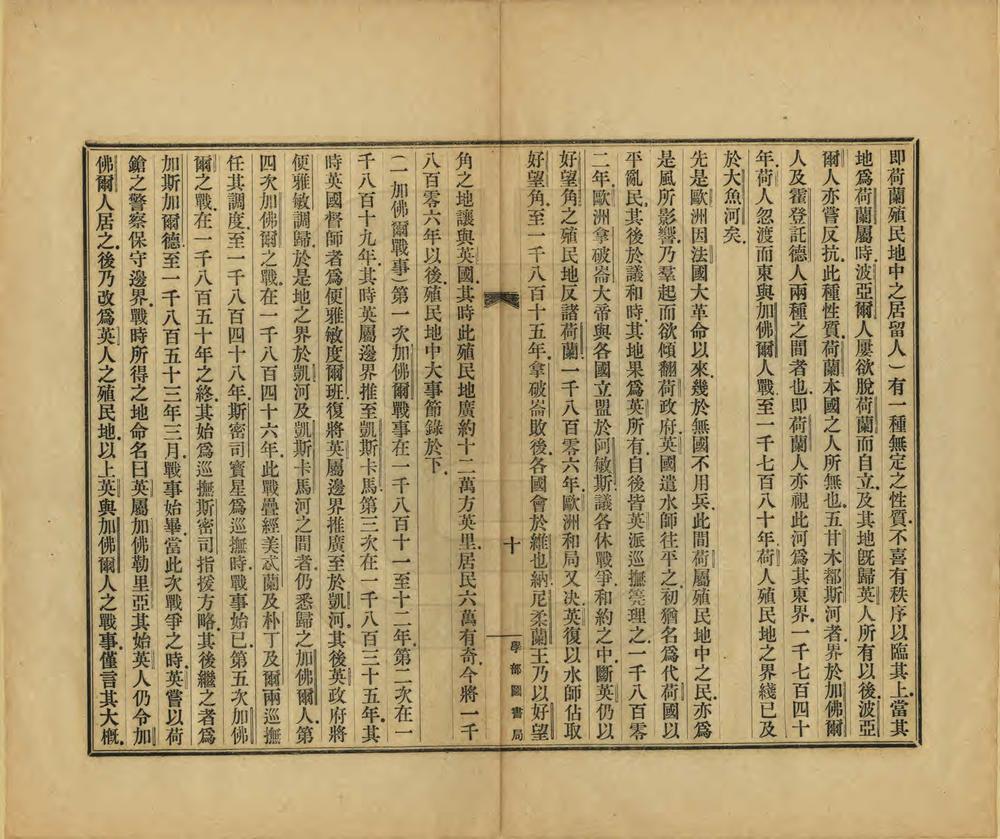 即荷蘭殖民地中之居留人）有一種無定之性質不喜有秩序以臨其上當其
地爲荷蘭屬時波亞爾人屢欲脫荷蘭而自立及其地既歸英人所有以後波亞
爾人亦嘗反抗此種性質荷蘭本國之人所無也五甘木都斯河者界於加佛爾
人及霍登託德人兩種之間者也即荷蘭人亦視此河爲其東界一千七百四十
年荷人忽渡而東與加佛爾人戰至一千七百八十年荷人殖民地之界綫已及
於大魚河矣
先是歐洲因法國大革命以來幾於無國不用兵此間荷屬殖民地中之民亦爲
是風所影響乃羣起而欲傾翻荷政府英國遣水師往平之初猶名爲代荷國以
平亂民其後於議和時其地果爲英所有自後皆英派巡撫理之一千八百零
二年歐洲拿破崙大帝與各國立盟於阿敏斯議各休戰爭和約之中斷英仍以
好望角之殖民地反諸荷蘭一千八百零六年歐洲和局又决英復以水師佔取
好望角至一千八百十五年拿破崙敗後各國會於維也納尼柔蘭王乃以好望
十
學部圖書局
角之地讓與英國其時此殖民地廣約十二萬方英里居民六萬有奇今將一千
八百零六年以後殖民地中大事節錄於下
（二 加佛爾戰事）第一次加佛爾戰事在一千八百十一至十二年第二次在一
千八百十九年其時英屬邊界推至凱斯卡馬第三次在一千八百三十五年其
時英國督師者爲便雅敏度爾班復將英屬邊界推廣至於凱河其後英政府將
便雅敏調歸於是地之界於凱河及凱斯卡馬河之間者仍悉歸之加佛爾人第
四次加佛爾之戰在一千八百四十六年此戰疊經美忒蘭及朴丁及爾兩巡撫
任其調度至一千八百四十八年斯密司寶星爲巡撫時戰事始已第五次加佛
爾之戰在一千八百五十年之終其始爲巡撫斯密司指援方略其後繼之者爲
加斯加爾德至一千八百五十三年三月戰事始畢當此次戰爭之時英嘗以荷
鎗之警察保守邊界戰時所得之地命名曰英屬加佛勒里亞其始英人仍令加
佛爾人居之後乃改爲英人之殖民地以上英與加佛爾人之戰事僅言其大槪